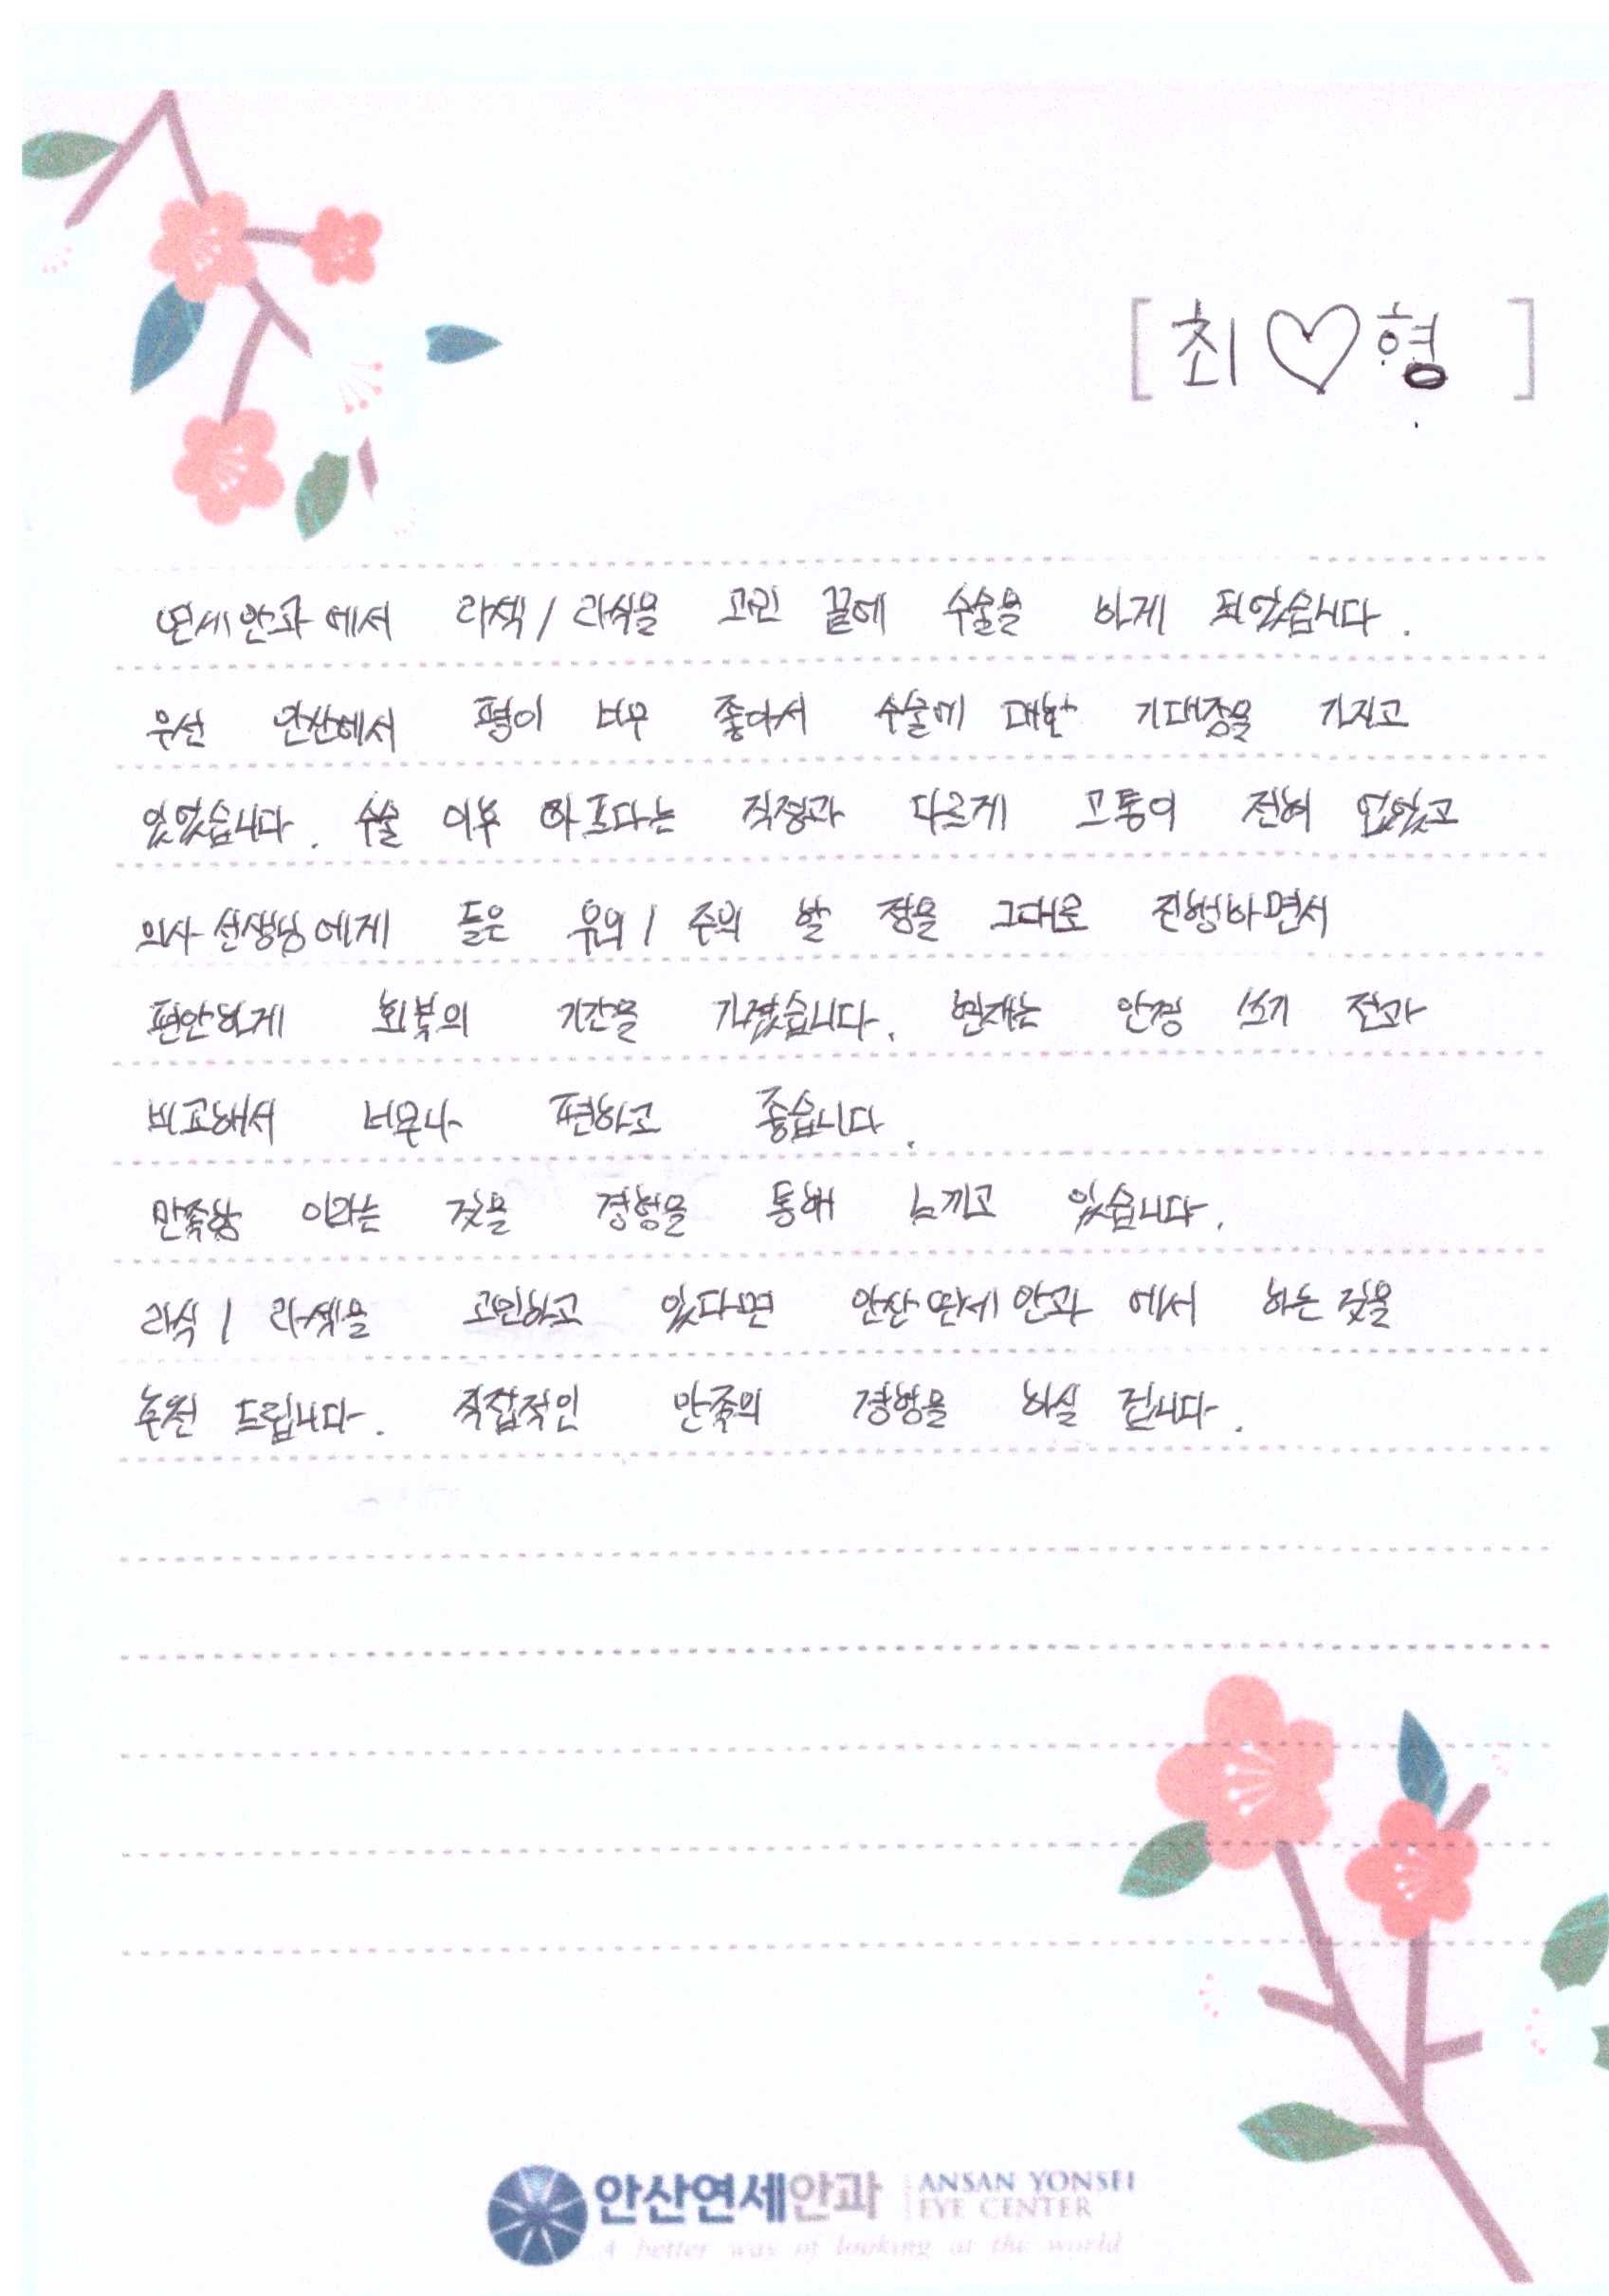 [ 최♡형 ]
연세안과에서 라섹/라식을 고민 끝에 수술을 하게 되었습니다.
우선 안산에서 평이 너무 좋아서 수술에 대한 기대감을 가지고
있었습니다. 수술 이후 아프다는 걱정과 다르게 고통이 전혀 없었고
의사선생님에게 들은 유의/주의 할 점을 그대로 진행하면서
편안하게 회복의 기간을 가졌습니다. 현재는 안경 쓰기 전과
비교해서 너무나 편하고 좋습니다.
만족감 이라는 것을 경험을 통해 느끼고 있습니다.
라식/라섹을 고민하고 있다면 안산연세안과에서 하는 것을
추천 드립니다. 직접적인 만족의 경험을 하실 겁니다.
안산연세안과 ANSAN YONSEI
EYE CENTER
A better way of looking at the world